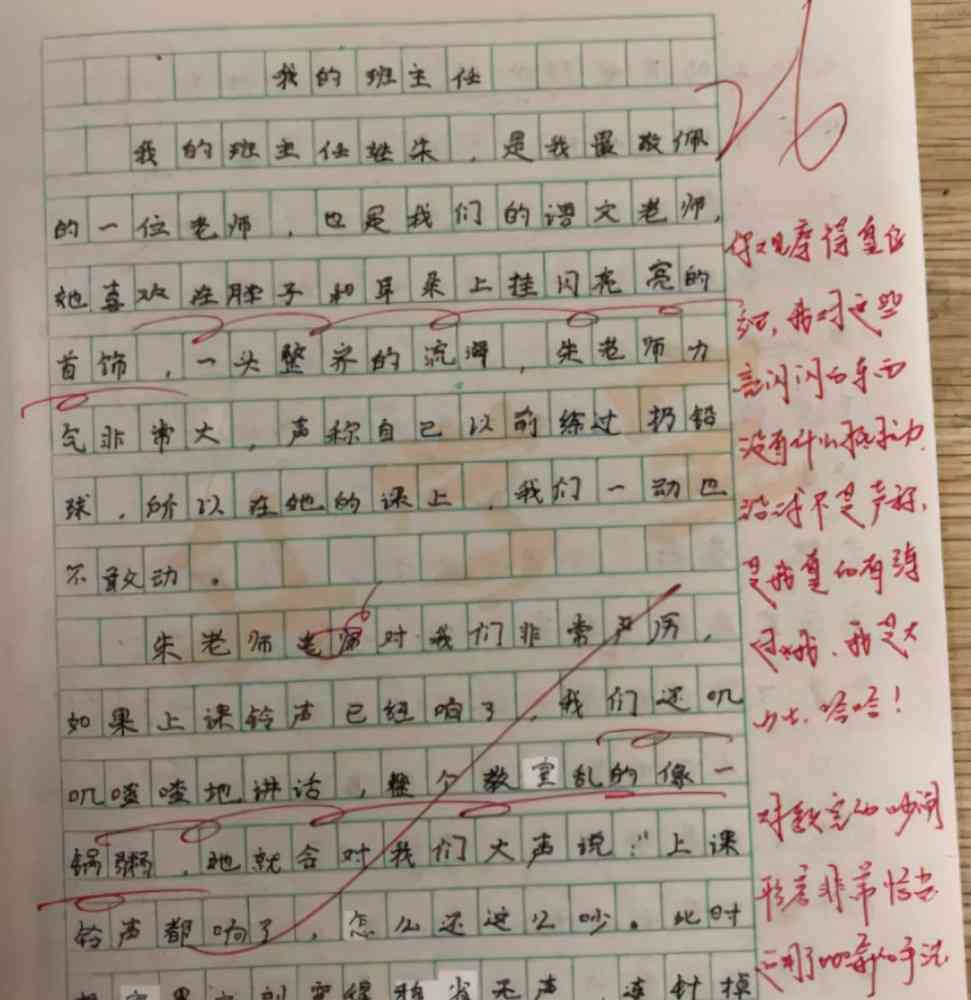 我的班主任
26
我的班主任姓朱，是我最敬佩
的一位老师，也是我们的语文老师，
她喜欢在脖子和耳朵上挂闪亮亮的
首饰，一头整齐的流海，朱老师力
气非常大，声称自己以前练过扔铅
球，所以在她的课上，我们一动也
不敢动。
朱老师老师对我们非常严厉，
如果上课铃声已经响了，我们还叽
叽喳喳地讲话，整个教室乱的像一
锅粥，她就会对我们大声说：“上课
铃声都响了，怎么还这么吵。此时
教室里立刻变得鸦雀无声，连针掉
你观察得真仔
细，我对这些
亮闪闪的东西
没有什么抵抗力
不是声称，
是我真的有练
过哦，我是大
力士，哈哈！
对教室的吵闹
形容非常恰当